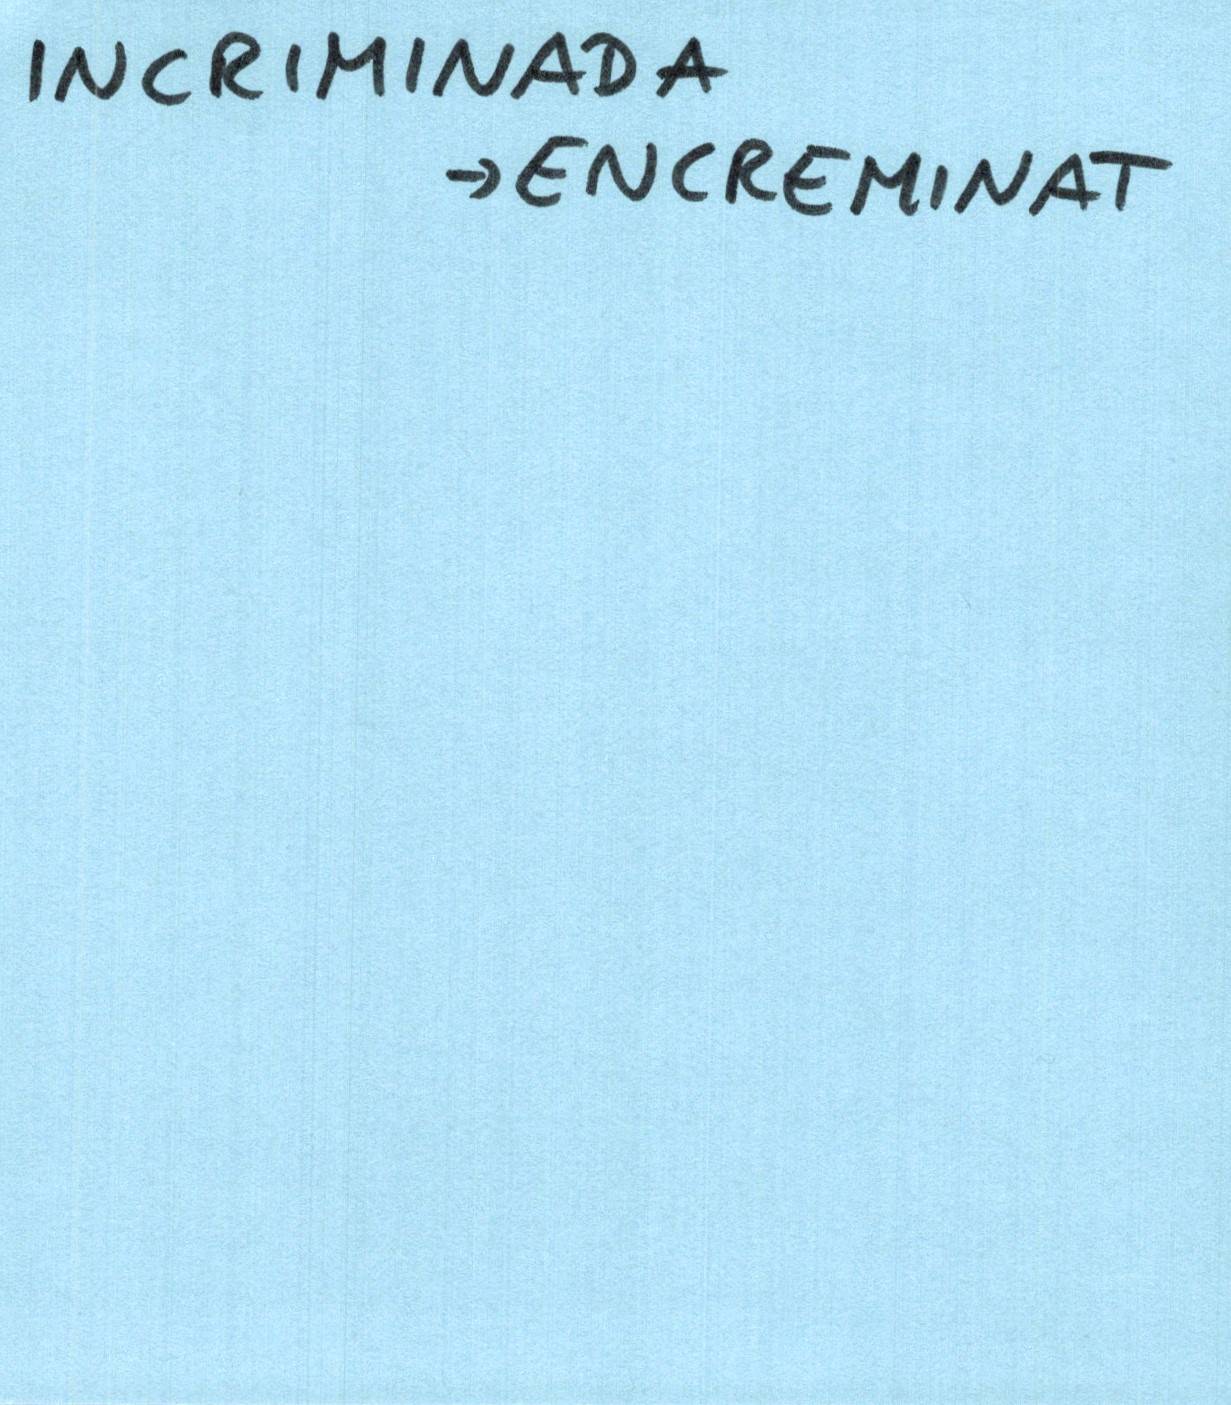 INCRIMINADA
→ENCREMINAT